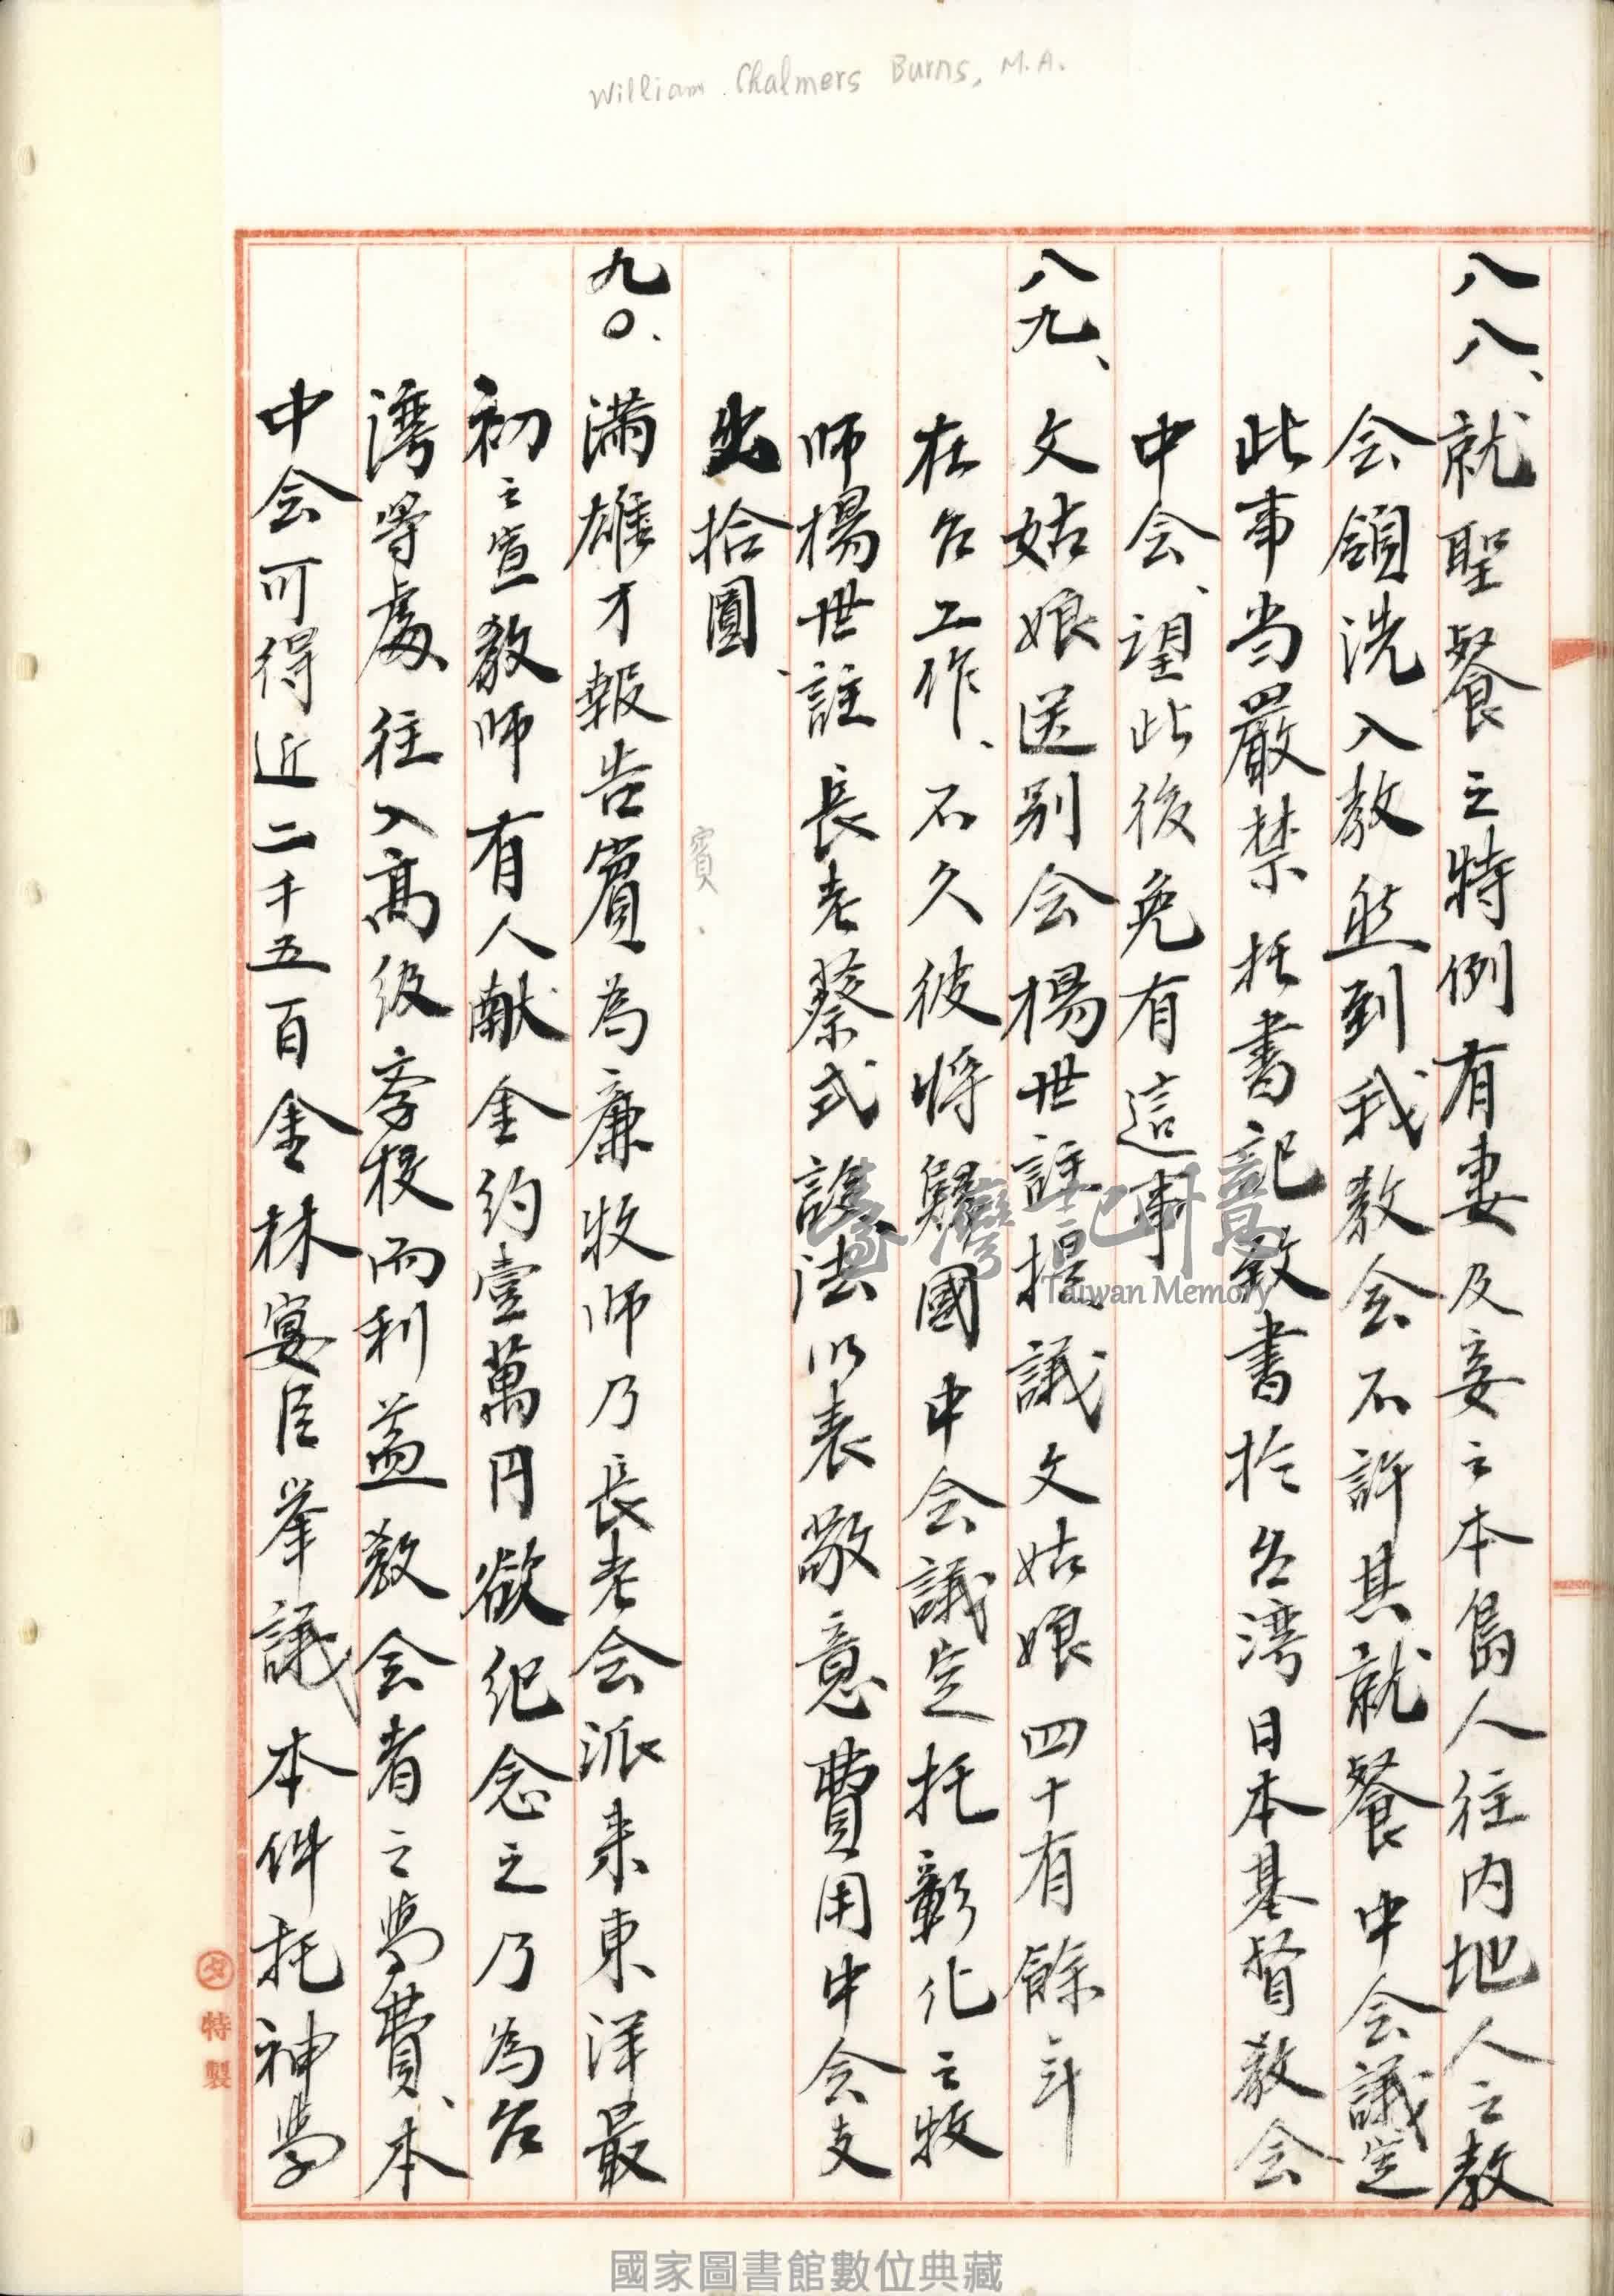 William Chalmers Burns, M.A.
八八、就聖餐之特例有妻及妾之本島人往内地人之教
会領洗入教然到我教会不許其就餐中会議定
此事当嚴禁托書記致書於台湾日本基督教会
中会、望此後免有這事
八九、文姑娘送別会楊世註提議文姑娘四十有餘年
在台工作、不久彼将歸國中会議定托彰化之牧
師楊世註、長老蔡式設法以表敬意費用中会支
出拾圓
賓、
九〇、満雄才報告賓為廉牧師乃長老会派来東洋最
初之宣教師有人献金約壹萬円欲紀念之乃為台
湾等處往入高級学校而利益教会者之學費、本
中会可得近二千五百金林宴臣举議本件托神學
タ特製
臺灣記憶
Taiwan Memory
國家圖書館數位典藏